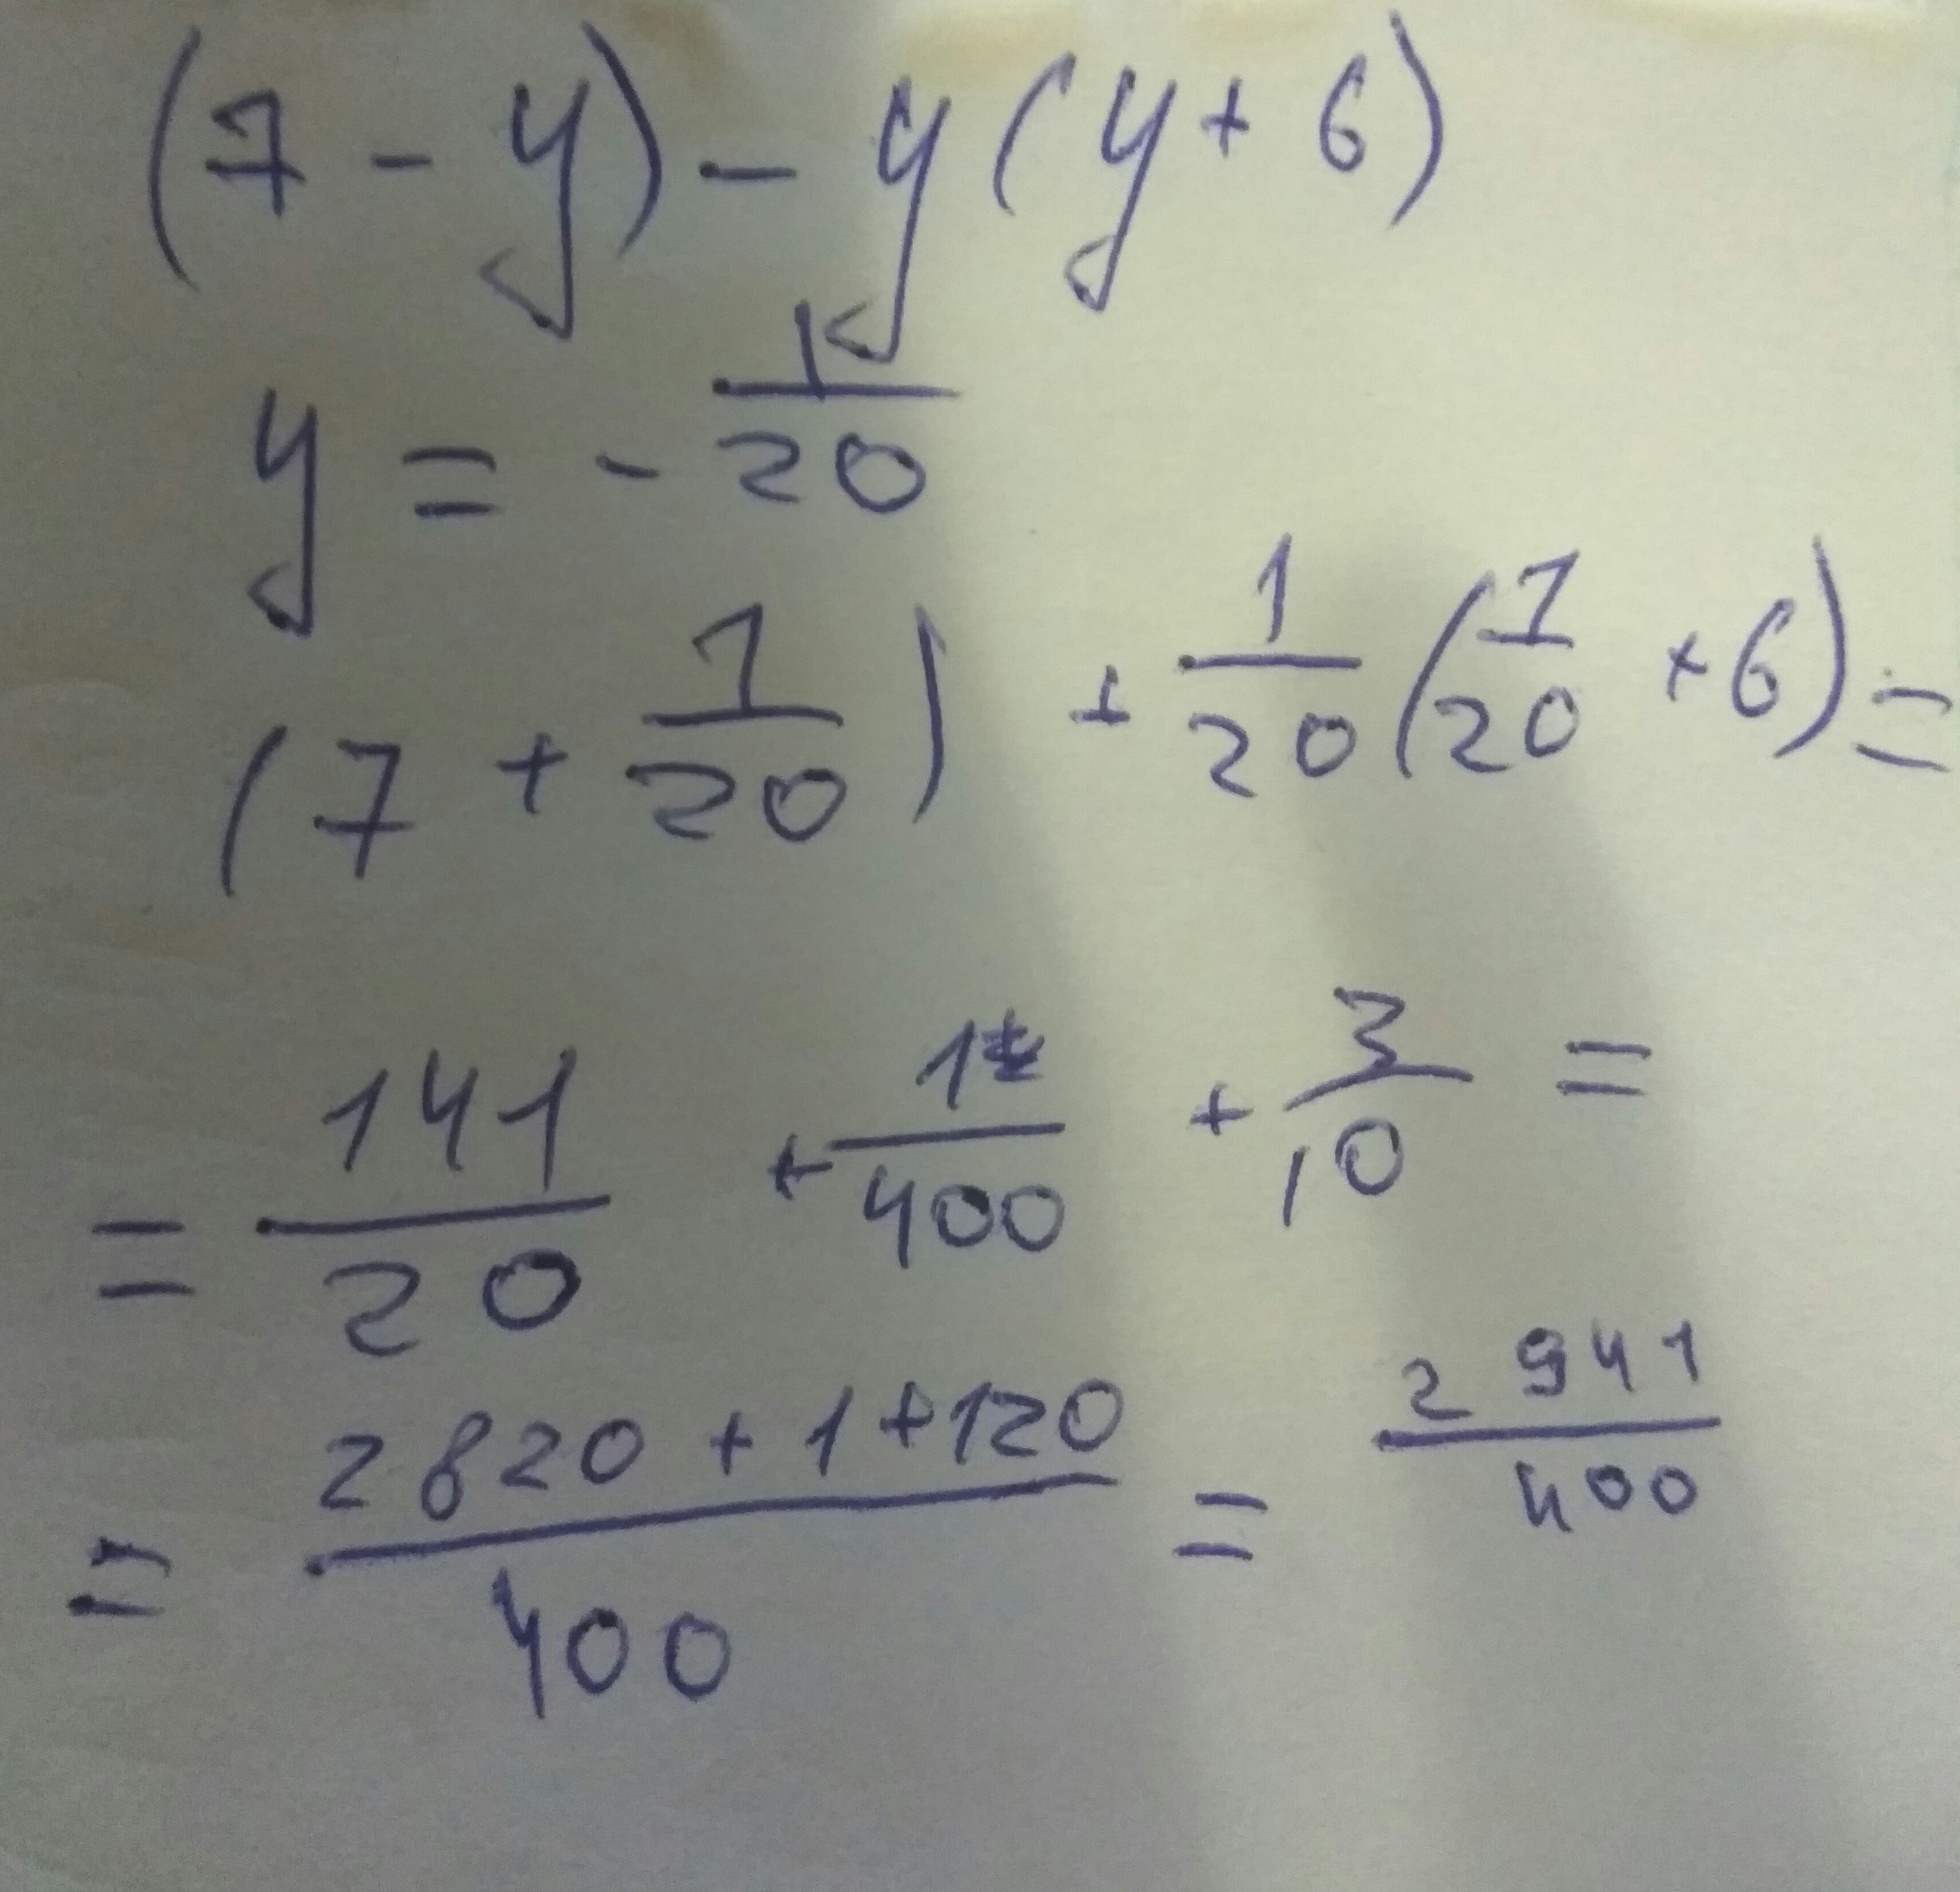 (7 - y) - y (y + 6)
y = - 1/20
(7 + 1/20) + 1/20 (1/20 + 6) =
= 141/20 + 1/400 + 3/10 =
= (2820 + 1 + 120)/400 = 2941/400